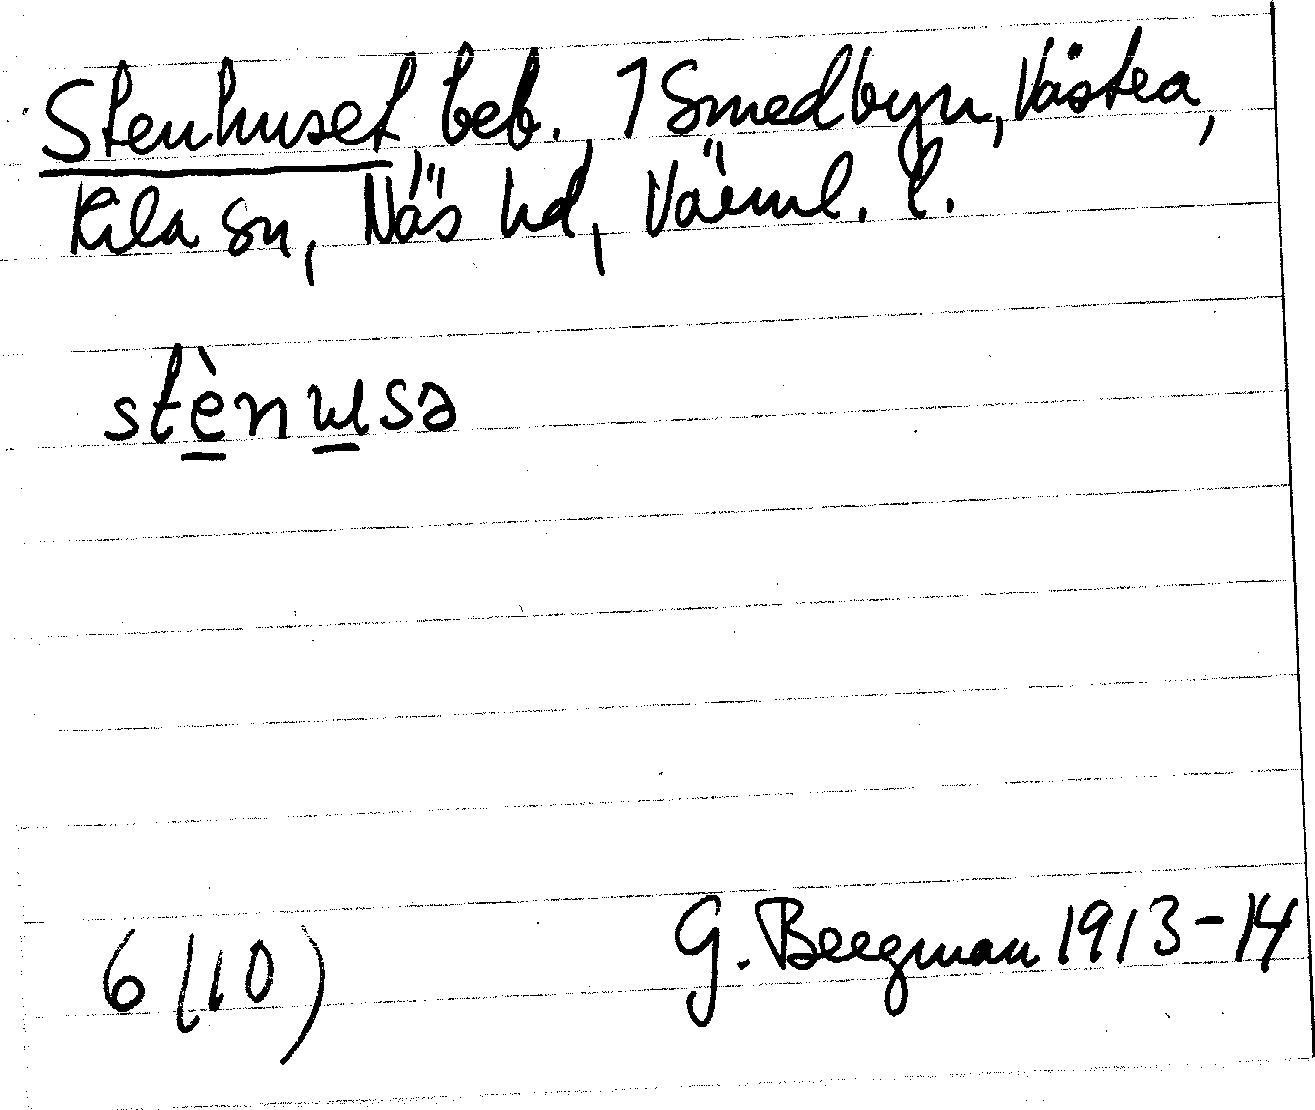 Stenhuset beb. 1 Smedbyn, Västra,
Kila sn, Näs hd, Värml. l.
stènusə
6 (10)
G. Bergman 1913-14